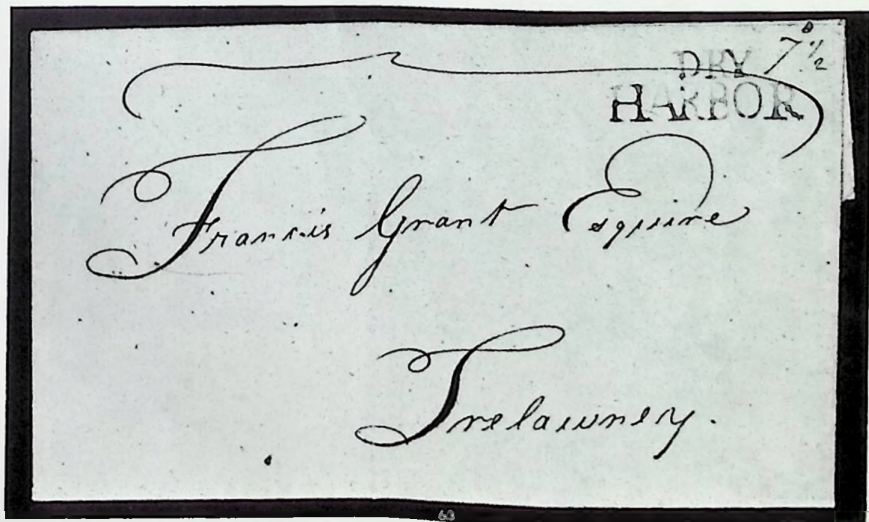 7 D ½
DRY
HARBOR
Francis Grant Esquire
Trelawney.
63